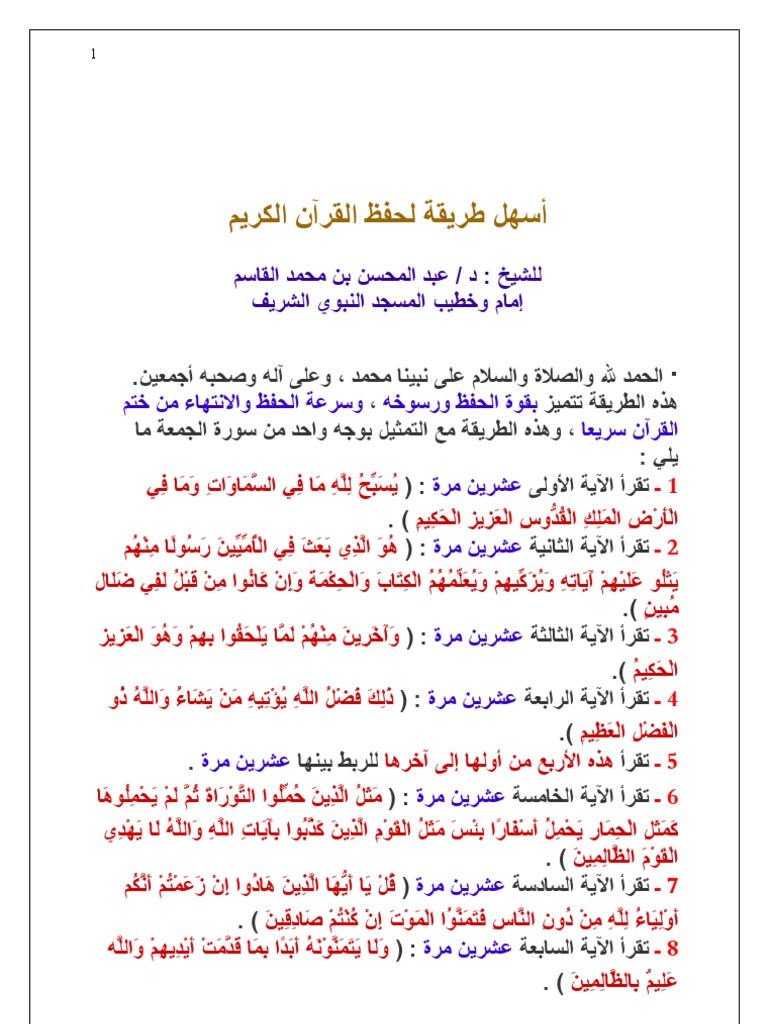 1
أسهل طريقة لحفظ القرآن الكريم
للشيخ : د / عبد المحسن بن محمد القاسم
إمام وخطيب المسجد النبوي الشريف
· الحمد لله والصلاة والسلام على نبينا محمد ، وعلى آله وصحبه أجمعين.
هذه الطريقة تتميز بقوة الحفظ ورسوخه ، وسرعة الحفظ والانتهاء من ختم
القرآن سريعا ، وهذه الطريقة مع التمثيل بوجه واحد من سورة الجمعة ما
يلي :
1 ـ تقرأ الآية الأولى عشرين مرة : ( يُسَبِّحُ لِلَّهِ مَا فِي السَّمَاوَاتِ وَمَا فِي
الْأَرْضِ الْمَلِكِ الْقُدُّوسِ الْعَزِيزِ الْحَكِيمِ ) .
2 ـ تقرأ الآية الثانية عشرين مرة : ( هُوَ الَّذِي بَعَثَ فِي الْأُمِّيِّينَ رَسُولًا مِنْهُم
يَتْلُو عَلَيْهِمْ آيَاتِهِ وَيُزَكِّيهِمْ وَيُعَلِّمُهُمُ الْكِتَابَ وَالْحِكْمَةَ وَإِنْ كَانُوا مِنْ قَبْلُ لَفِي ضَلَالٍ
مُبِينٍ ).
3 ـ تقرأ الآية الثالثة عشرين مرة : ( وَآخَرِينَ مِنْهُمْ لَمَّا يَلْحَقُوا بِهِمْ وَهُوَ الْعَزِيزُ
الْحَكِيمُ ).
4 ـ تقرأ الآية الرابعة عشرين مرة : ( ذَلِكَ فَضْلُ اللَّهِ يُؤْتِيهِ مَنْ يَشَاءُ وَاللَّهُ ذُو
الْفَضْلِ الْعَظِيمِ ).
5 ـ تقرأ هذه الأربع من أولها إلى آخرها للربط بينها عشرين مرة .
6 ـ تقرأ الآية الخامسة عشرين مرة : ( مَثَلُ الَّذِينَ حُمِّلُوا التَّوْرَاةَ ثُمَّ لَمْ يَحْمِلُوهَا
كَمَثَلِ الْحِمَارِ يَحْمِلُ أَسْفَارًا بِئْسَ مَثَلُ الْقَوْمِ الَّذِينَ كَذَّبُوا بِآيَاتِ اللَّهِ وَاللَّهُ لَا يَهْدِي
الْقَوْمَ الظَّالِمِينَ ) .
7 ـ تقرأ الآية السادسة عشرين مرة ( قُلْ يَا أَيُّهَا الَّذِينَ هَادُوا إِنْ زَعَمْتُمْ أَنَّكُم
أَوْلِيَاءُ لِلَّهِ مِنْ دُونِ النَّاسِ فَتَمَنَّوُا الْمَوْتَ إِنْ كُنْتُمْ صَادِقِينَ ) .
8 ـ تقرأ الآية السابعة عشرين مرة : ( وَلَا يَتَمَنَّوْنَهُ أَبَدًا بِمَا قَدَّمَتْ أَيْدِيهِمْ وَاللَّه
عَلِيمٌ بِالظَّالِمِينَ ) .